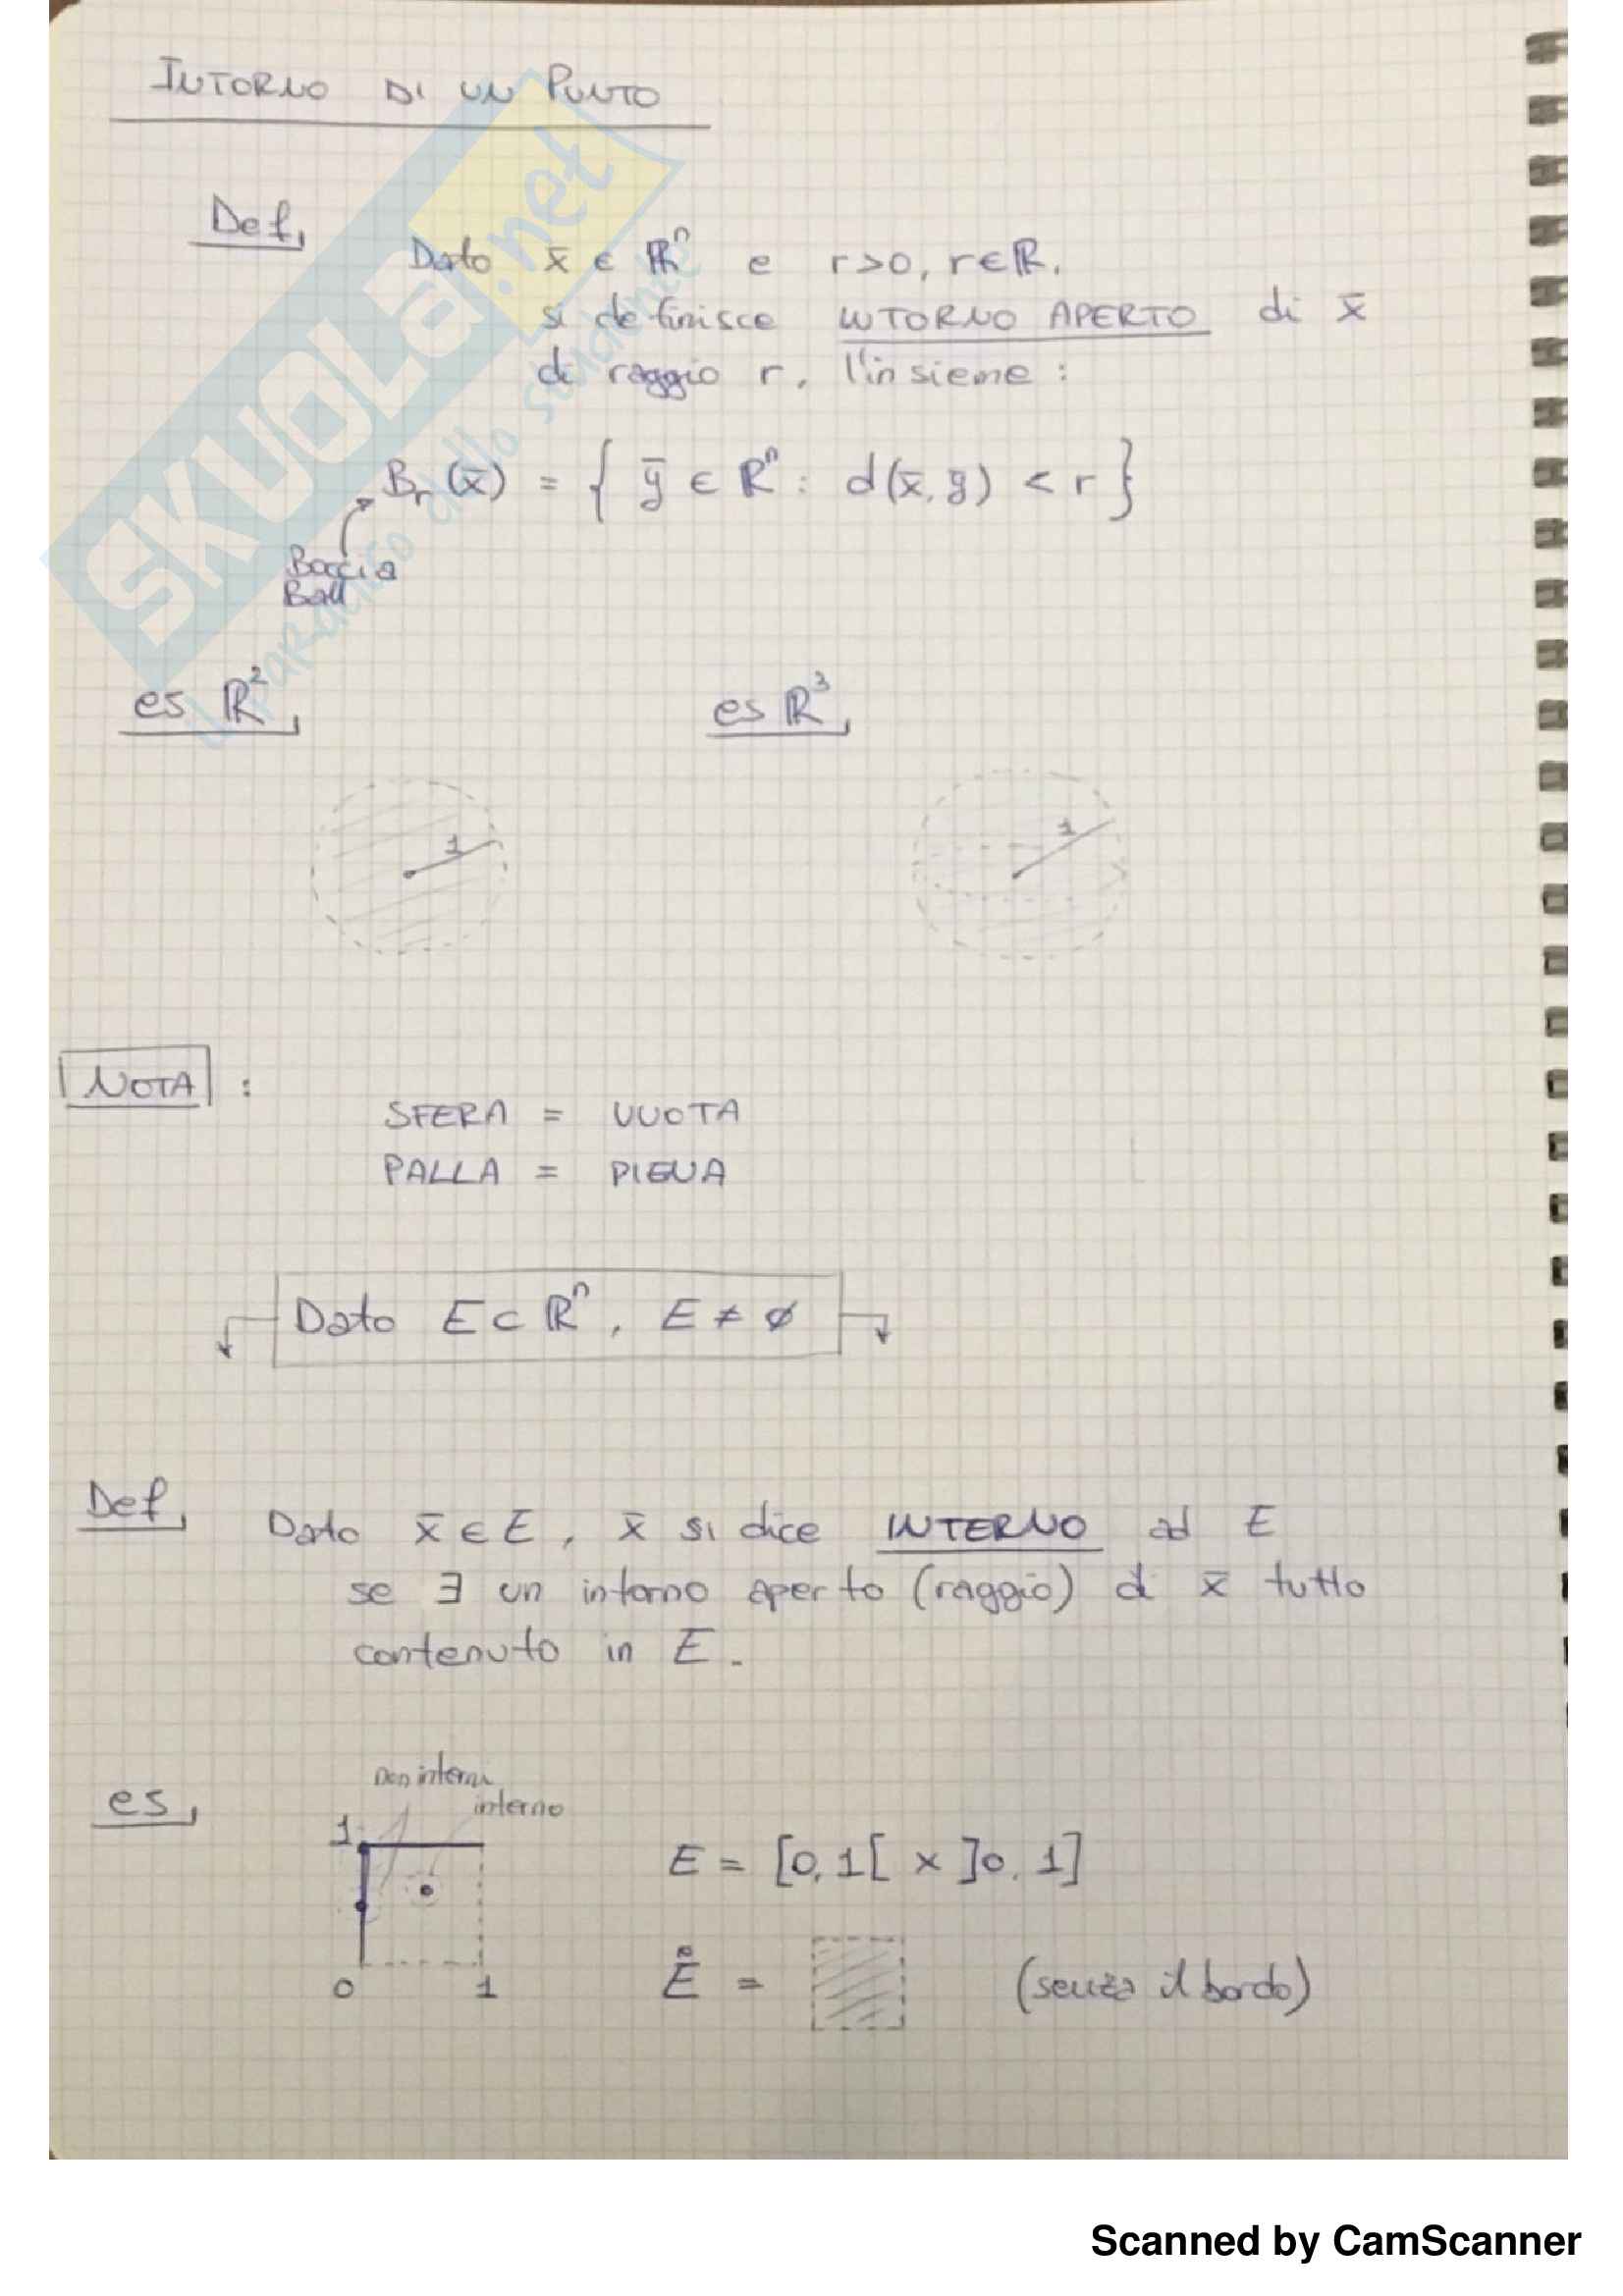 INTORNO DI UN PUNTO
Def.
Dato x̄ ∈ ℝⁿ e r>0, r∈ℝ.
si definisce INTORNO APERTO di x̄
di raggio r, l'insieme :
Bᵣ(x̄) = { ȳ ∈ ℝⁿ : d(x̄,ȳ) < r }
Boccia
Ball
es ℝ²
es ℝ³
1
1
NOTA :
SFERA = VUOTA
PALLA = PIENA
Dato E ⊂ ℝⁿ, E ≠ ∅
Def.
Dato x̄ ∈ E, x̄ si dice INTERNO ad E
se ∃ un intorno aperto (raggio) di x̄ tutto
contenuto in E.
es.
non interni
interno
1
E = [0,1[ × ]0,1]
0 1
E̊ = (senza il bordo)
SKUOLA.net
il paradiso dello studente
Scanned by CamScanner